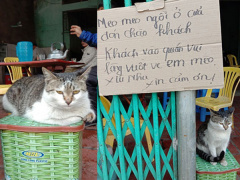 Meo meo ngồi ở cửa
đón chào khách
Khách vào quán vui
lòng vuốt ve em meo
xíu nha xin cảm ơn!